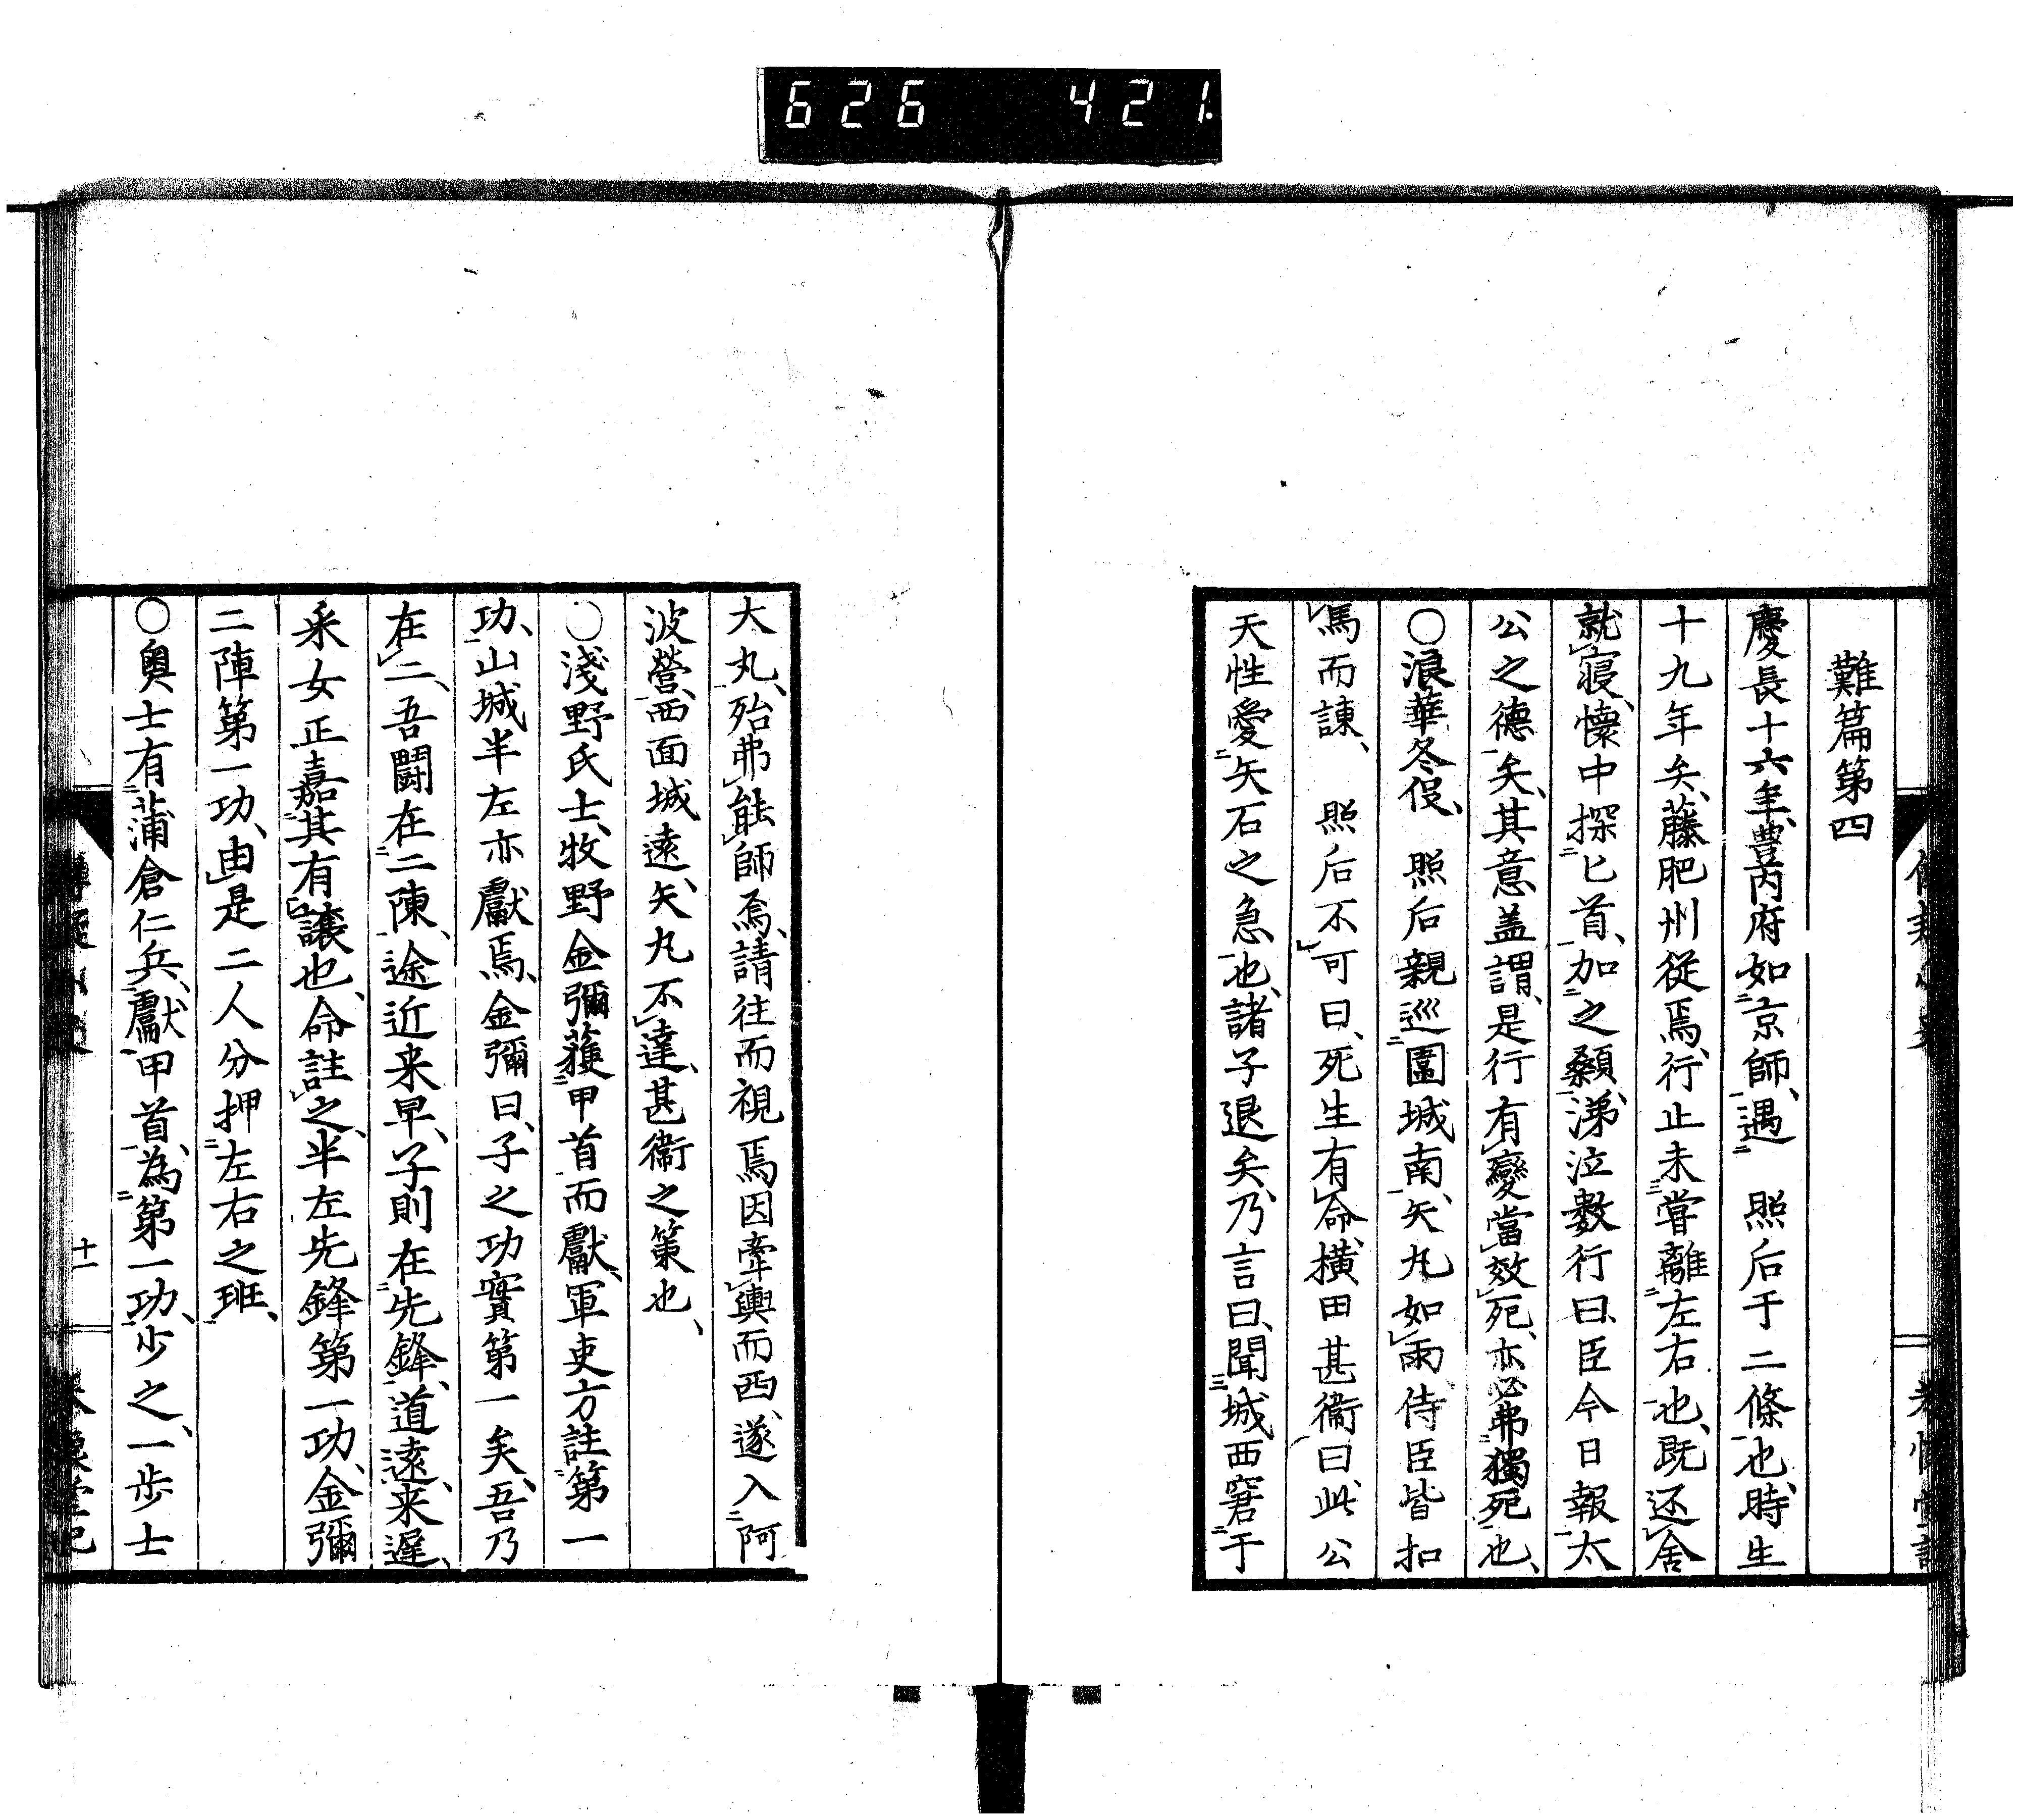 626 421
難篇第四
慶長十六年、豊芮府如京師、遇 照后于二條也、時生
十九年矣、藤肥州従焉、行止未嘗離左右也、既还舎
就寝、懐中探匕首、加之顙、涕泣数行曰、臣今日報太
公之德矣、其意盖謂、是行有變當效死、亦必弗獨死也、
〇浪華冬役、 照后親巡圍城南、矢丸如雨侍臣皆扣
馬而諌、 照后不可曰、死生有命、横田甚衞曰此公
天性愛矢石之急也、諸子退矣、乃言曰、聞城西窘于
大丸、殆弗能師焉、請往而視焉因牽輿而西、遂入阿
波營、西面城遠、矢丸不達、甚衞之策也、
〇淺野氏士、牧野金彌獲甲首而獻、軍吏方註第一
功、山城半左亦獻焉、金彌曰、子之功實第一矣、吾乃
在二、吾闘在二陳、途近来早、子則在先鋒、道遠、来遅、
采女正嘉其有譲也、命註之、半左先鋒第一功、金彌
二陣第一功、由是二人分押左右之班、
〇奥士有蒲倉仁兵、獻甲首、為第一功、少之、一歩士
十一